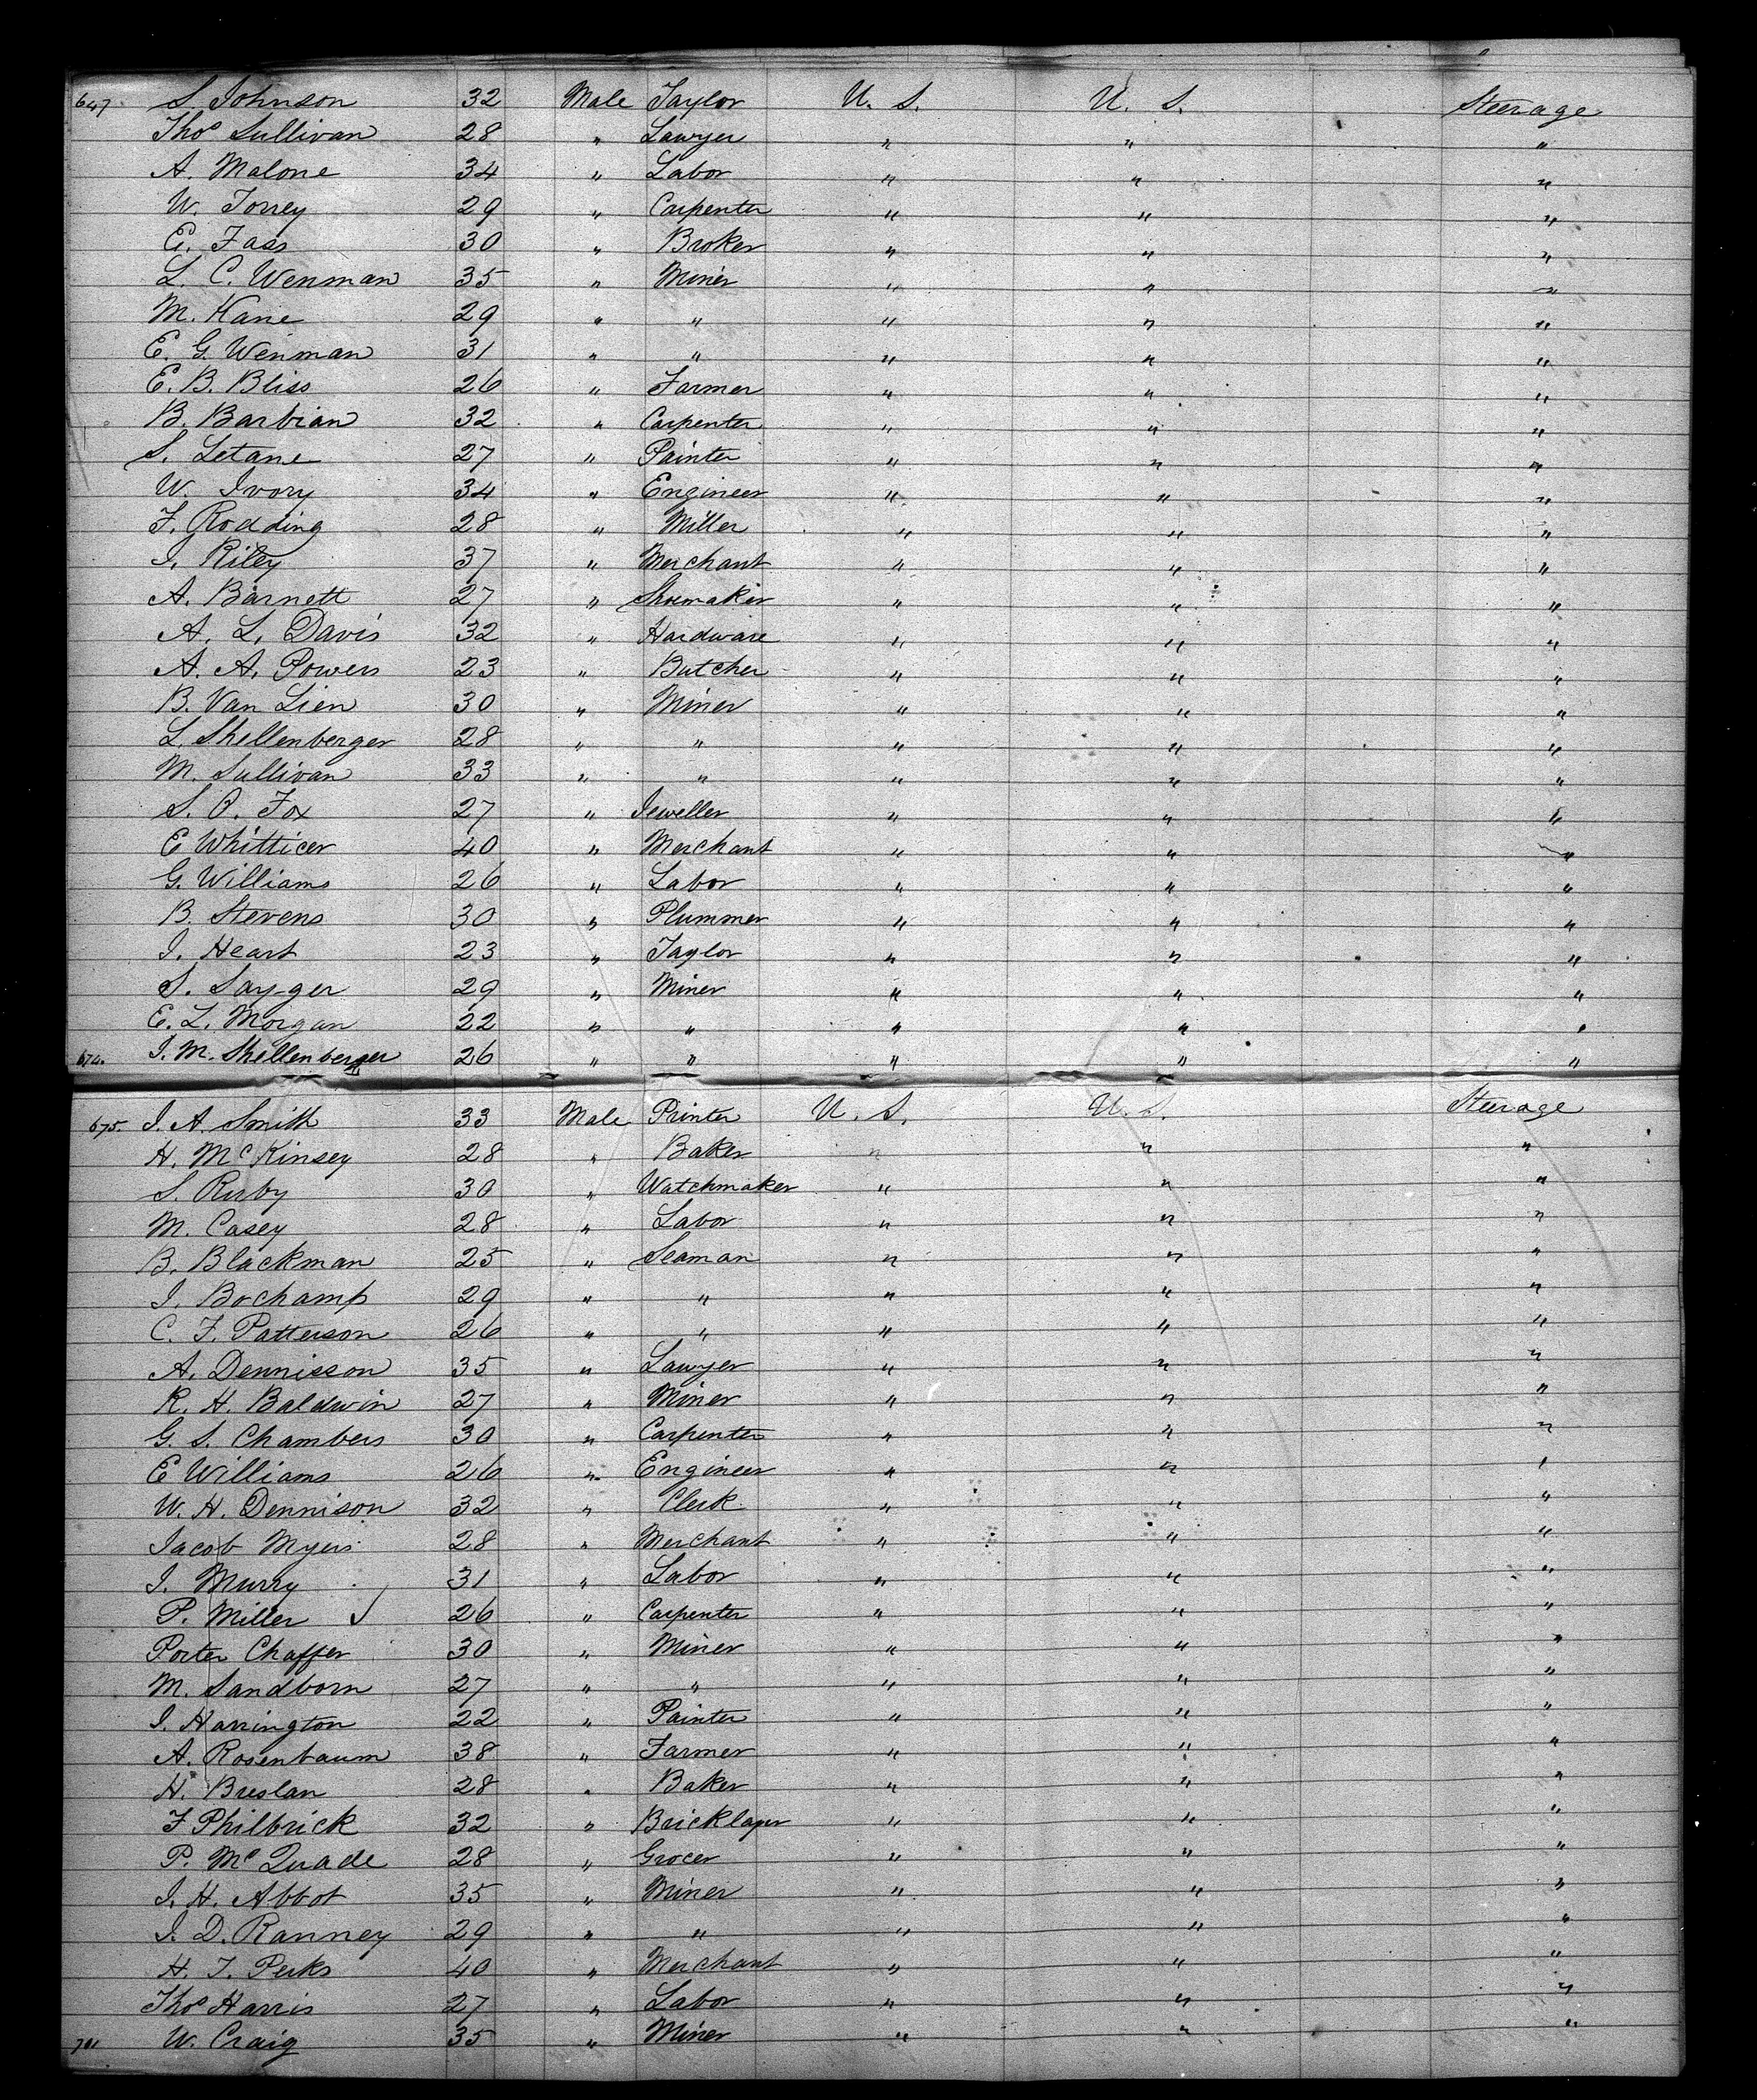 647 S. Johnson 32 Male Taylor U. S. U. S. Steerage
Thos Sullivan 28 " Lawyer " " "
A. Malone 34 " Labor " " "
W. Torrey 29 " Carpenter " " "
E. Fass 30 " Broker " " "
L. C. Wenman 35 " Miner " " "
M. Kane 29 " " " " "
E. G. Wenman 31 " " " " "
E. B. Bliss 26 " Farmer " " "
B. Barbian 32 " Carpenter " " "
S. Letane 27 " Painter " " "
W. Ivory 34 " Engineer " " "
F. Rodding 28 " Miller " " "
I. Riley 37 " Merchant " " "
A. Barnett 27 " Shoemaker " " "
A. L. Davis 32 " Hardware " " "
A. A. Powers 23 " Butcher " " "
B. Van Lien 30 " Miner " " "
L. Shellenberger 28 " " " " "
M. Sullivan 33 " " " " "
S. O. Fox 27 " Jeweller " " "
E Whitticer 40 " Merchant " " "
G. Williams 26 " Labor " " "
B. Stevens 30 " Plummer " " "
I. Heart 23 " Taylor " " "
S. Sayger 29 " Miner " " "
E. L. Morgan 22 " " " " "
674. I. M. Shellenberger 26 " " " " "
675. I. A. Smith 33 Male Printer U. S. U. S. Steerage
H. McKinsey 28 " Baker " " "
S. Ruby 30 " Watchmaker " " "
M. Casey 28 " Labor " " "
B. Blackman 25 " Seaman " " "
I. Bochamp 29 " " " " "
C. F. Patterson 26 " " " " "
A. Dennisson 35 " Lawyer " " "
R. H. Baldwin 27 " Miner " " "
G. S. Chambers 30 " Carpenter " " "
E Williams 26 " Engineer " " "
W. H. Dennison 32 " Clerk " " "
Jacob Myers 28 " Merchant " " "
I. Murry 31 " Labor " " "
P. Miller 26 " Carpenter " " "
Porter Chaffer 30 " Miner " " "
M. Sandborn 27 " " " " "
I. Harrington 22 " Painter " " "
A. Rosenbaum 38 " Farmer " " "
H. Breslan 28 " Baker " " "
F Philbrick 32 " Bricklayer " " "
P. McQuade 28 " Grocer " " "
I. H. Abbot 35 " Miner " " "
I. D. Ranney 29 " " " " "
H. T. Perks 40 " Merchant " " "
Thos Harris 27 " Labor " " "
701 W. Craig 35 " Miner " " "